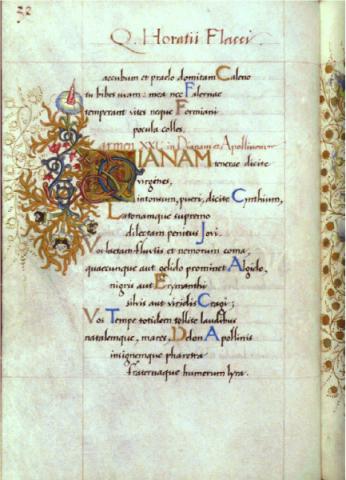 32
Q. Horatii Flacci.
accubum et praelo domitam Caleno
tu bibes uvam: mea nec Falernae
temperant vites neque Formiani
pocula colles.
CARMOI XXI. in Dianam et Apollinem
DIANAM tenerae dicite
virgines,
Intonsum, pueri, dicite Cynthium,
Latonamque supremo
dilectam penitus Jovi.
Vos laetam fluviis et nemorum coma,
quaecunque aut gelido prominet Algido,
nigris aut Erymanthi
silvis aut viridis Cragi;
Vos Tempe totidem tollite laudibus
natalemque, mares, Delon Apollinis
insignemque pharetra
fraternaque humerum lyra.